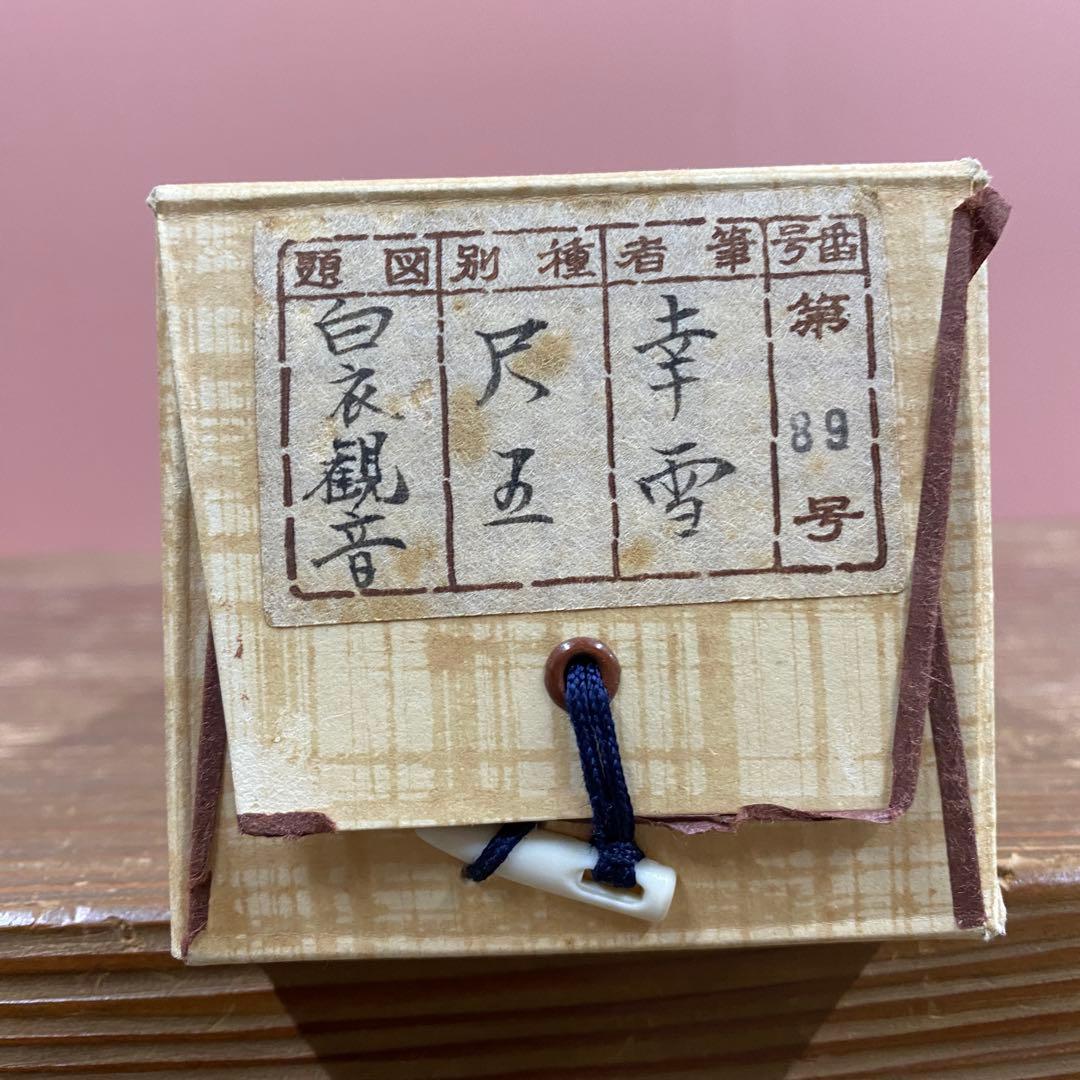 番号
第
89
号
筆者
幸雪
種別
尺五
図題
白衣観音